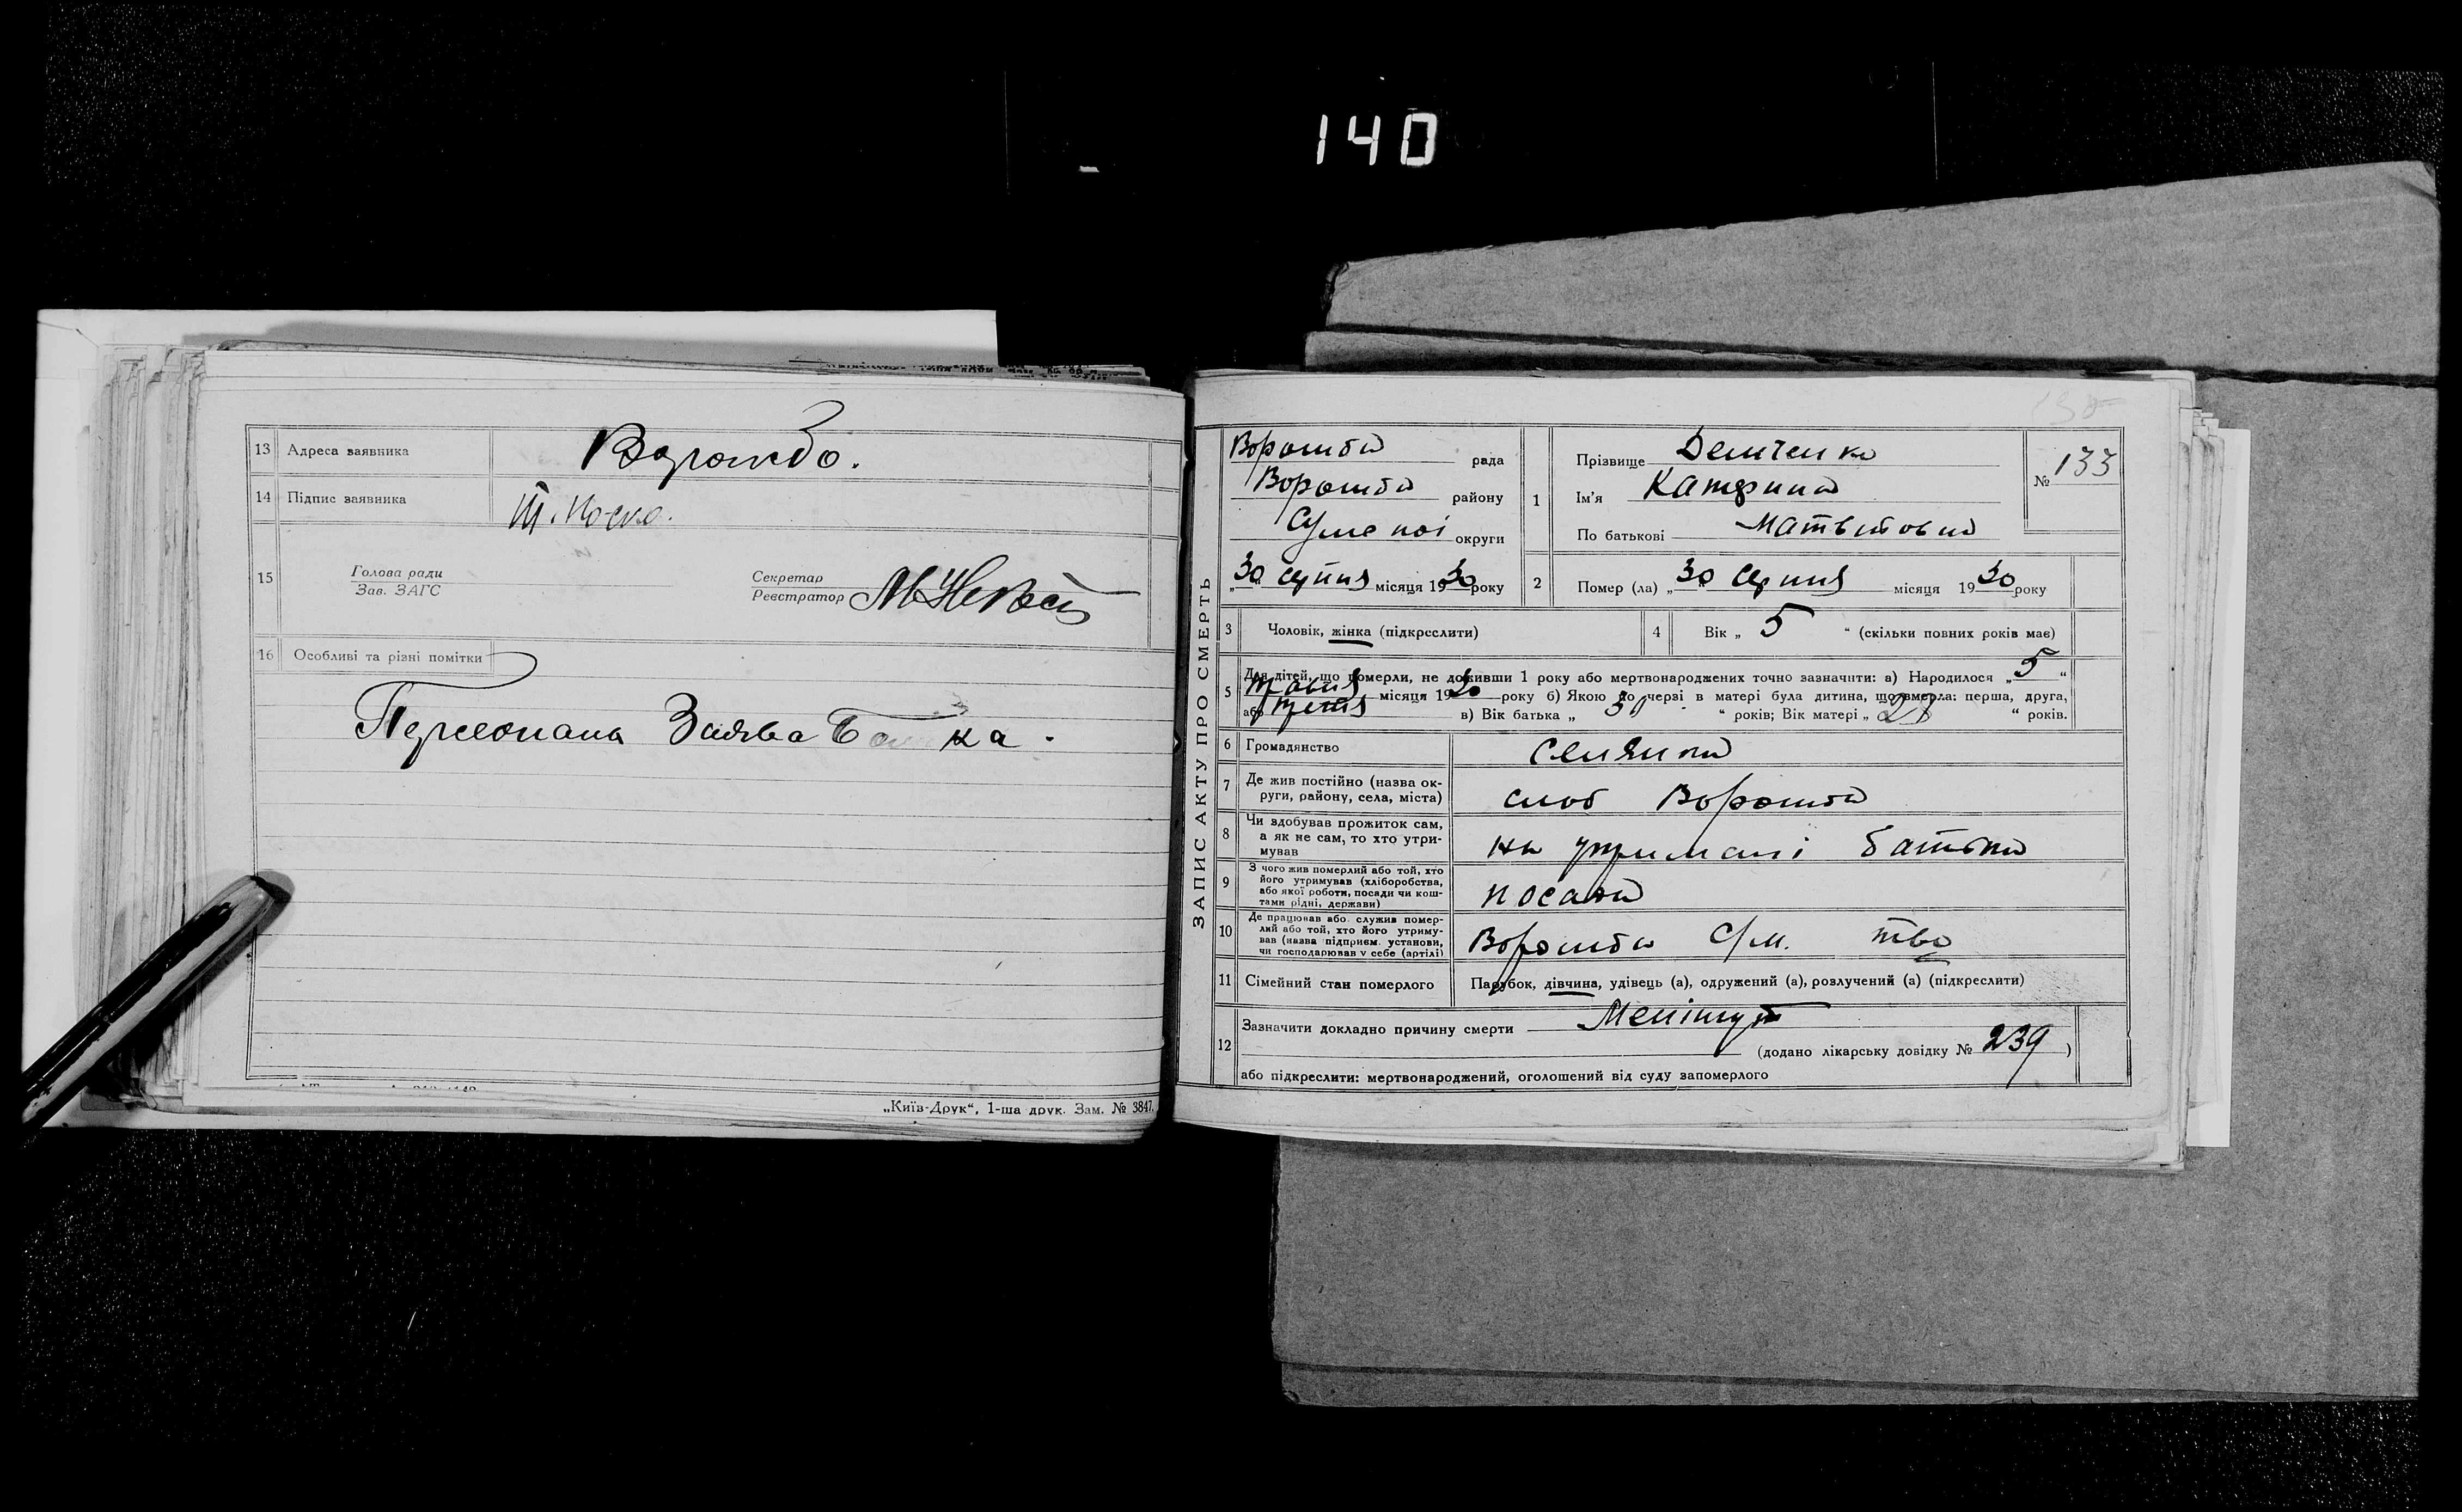 140
13 Адреса заявника Ворожба.
14 Підпис заявника
15 Голова ради
Зав. ЗАГС
Секретар
Реєстратор
16 Особливі та різні помітки
Заява
„Київ-Друк“, 1-ша друк. Зам. № 3847.
ЗАПИС АКТУ ПРО СМЕРТЬ
Ворожба рада
Ворожба району
округи
„30 серпня місяця 1930 року
1 Прізвище Демченко
Ім'я Катерина
По батькові Матвіївна
№ 133
2 Помер (ла) „30 серпня місяця 1930 року
3 Чоловік, жінка (підкреслити)
4 Вік „ 5 “ (скільки повних років має)
5 Для дітей, що померли, не доживши 1 року або мертвонароджених точно зазначити: а) Народилося „ 5 “
травня місяця 1930 року б) Якою по черзі в матері була дитина, що вмерла: перша, друга,
або третя в) Вік батька „ 30 “ років; Вік матері „ “ років.
6 Громадянство селянка
7 Де жив постійно (назва ок-
руги, району, села, міста) слоб Ворожба
8 Чи здобував прожиток сам,
а як не сам, то хто утри-
мував на утримані батька
9 З чого жив померлий або той, хто
його утримував (хліборобства,
або якої роботи, посади чи кош-
тами рідні, держави) посади
10 Де працював або служив помер-
лий або той, хто його утриму-
вав (назва підприєм. установи,
чи господарював у себе (артілі) Ворожба С/м. тво
11 Сімейний стан померлого Парубок, дівчина, удівець (а), одружений (а), розлучений (а) (підкреслити)
12 Зазначити докладно причину смерти Менінгит
(додано лікарську довідку № 239 )
або підкреслити: мертвонароджений, оголошений від суду запомерлого